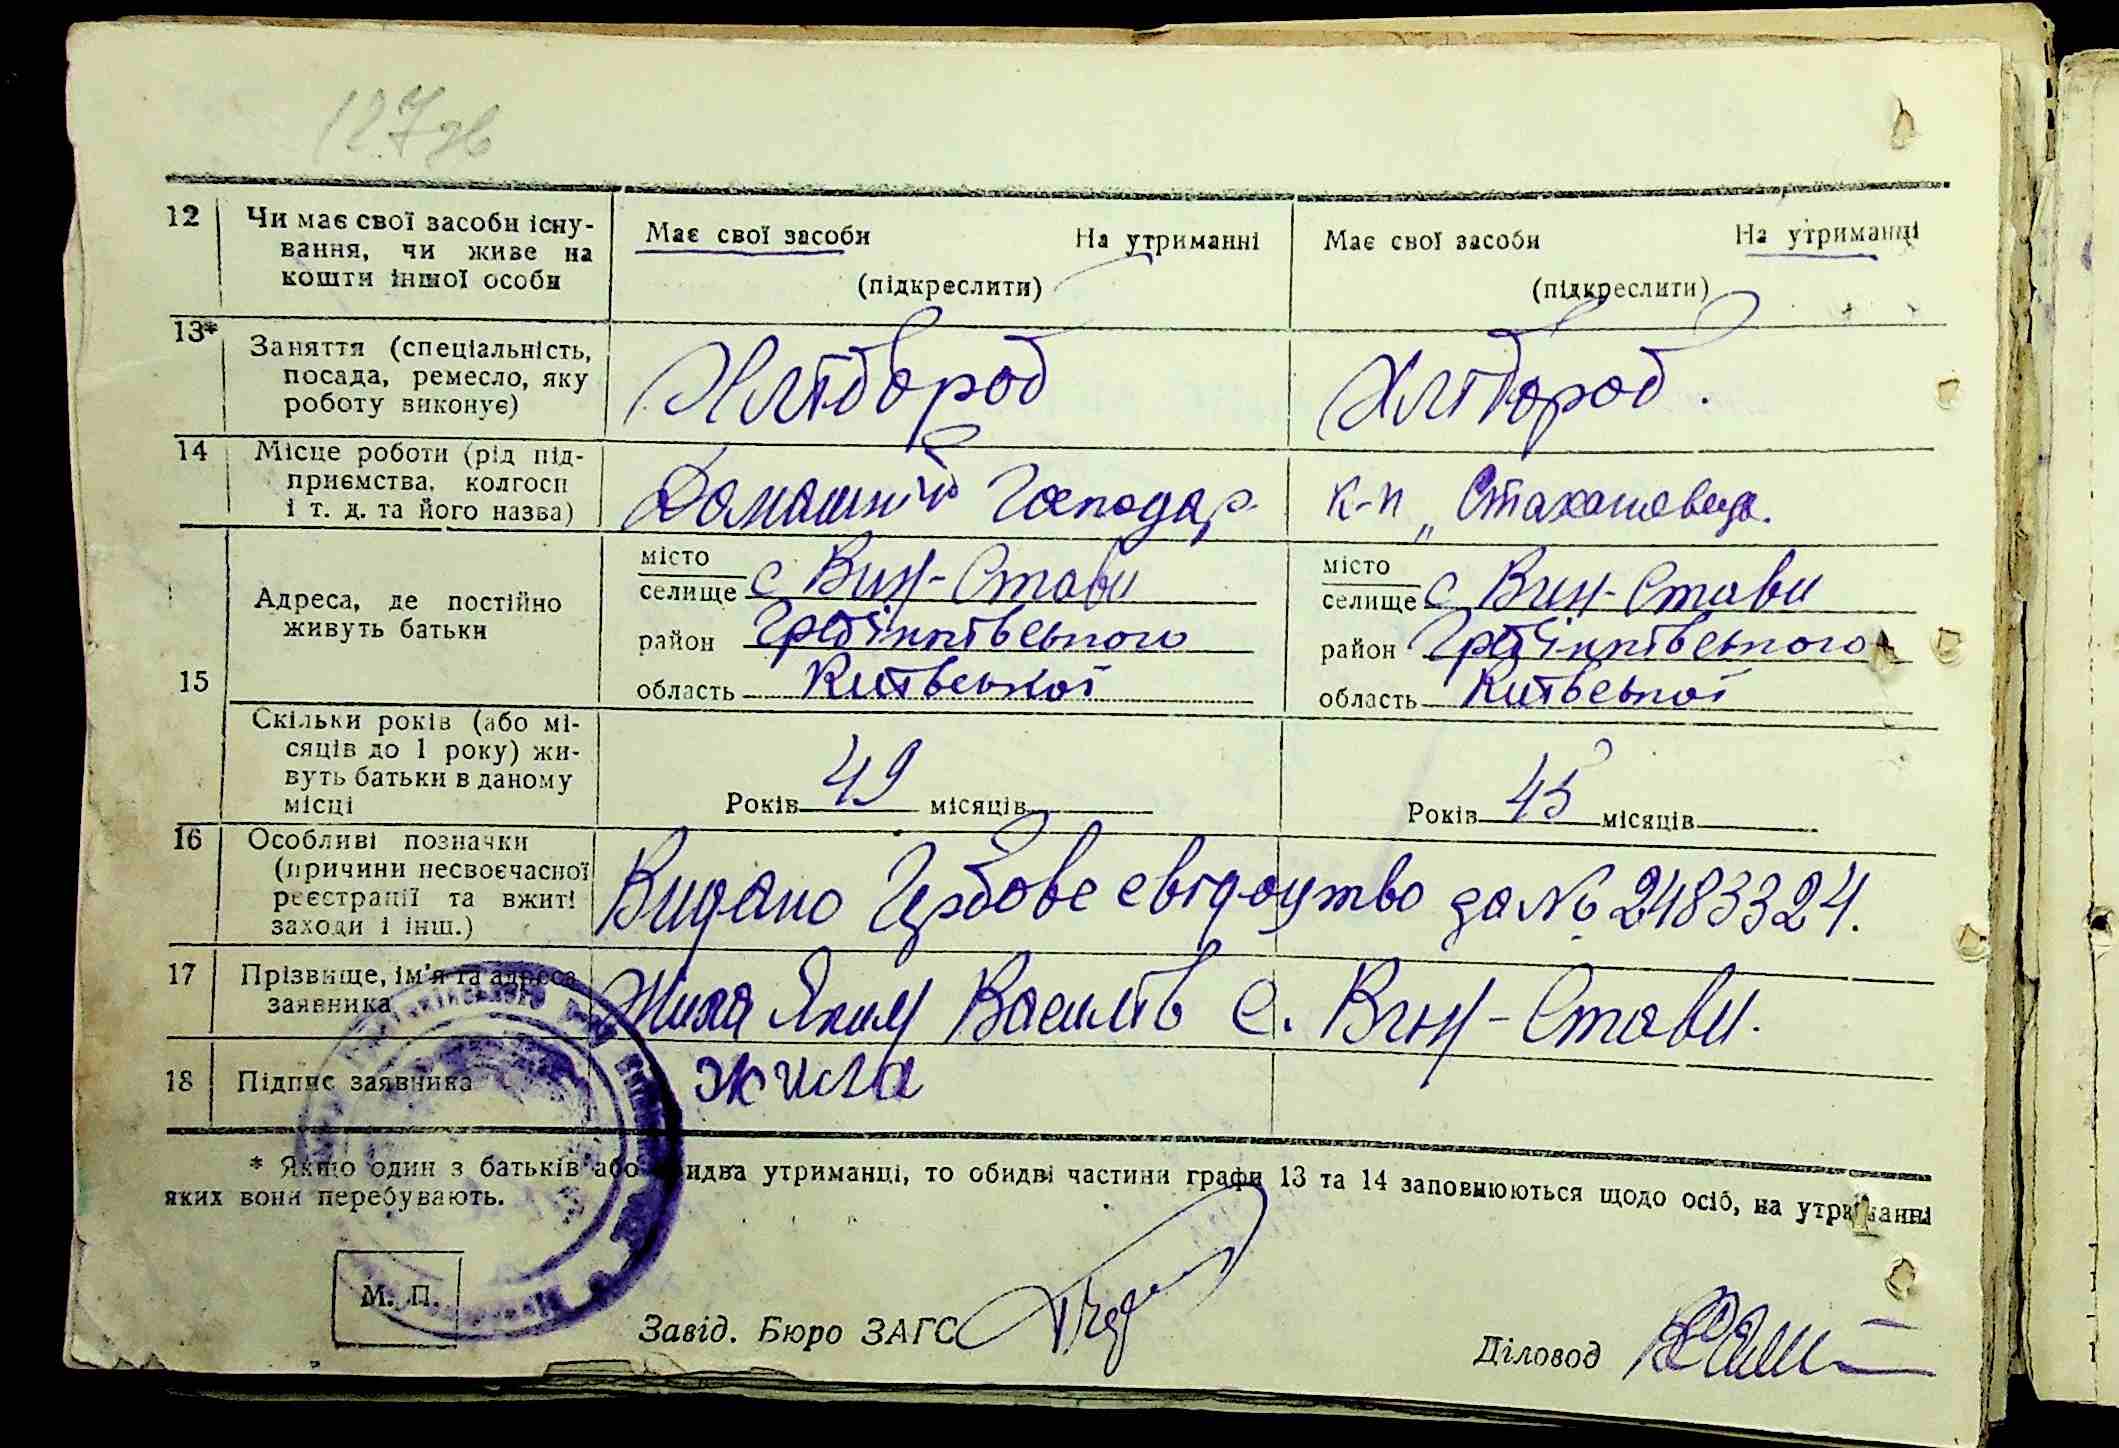 127зв
12 Чи має свої засоби існу-
вання, чи живе на
кошти іншої особи
Має свої засоби На утриманні
(підкреслити)
Має свої засоби На утриманці
(підкреслити)
13* Заняття (спеціальність,
посада, ремесло, яку
роботу виконує)
Хлібороб
Хлібороб.
14 Місце роботи (рід під-
приємства, колгосп
і т. д. та його назва)
Домашній Господар.
к-п „Стахановець.
15 Адреса, де постійно
живуть батьки
місто
селище с Вин-Стави
район Гребінківського
область Київської
місто
селище с Вин-Стави
район Гребінківського
область Київської
Скільки років (або мі-
сяців до 1 року) жи-
вуть батьки в даному
місці
Років 49 місяців
Років 45 місяців
16 Особливі позначки
(причини несвоєчасної
реєстрації та вжиті
заходи і інш.)
Видано Гербове свідоцтво за № 2483324.
17 Прізвище, ім'я та адреса
заявника
Жила Яким Василів с. Вин-Стави.
18 Підпис заявника
Жила
* Якщо один з батьків або обидва утриманці, то обидві частини графи 13 та 14 заповнюються щодо осіб, на утриманні
яких вони перебувають.
М. П.
Завід. Бюро ЗАГС
Діловод